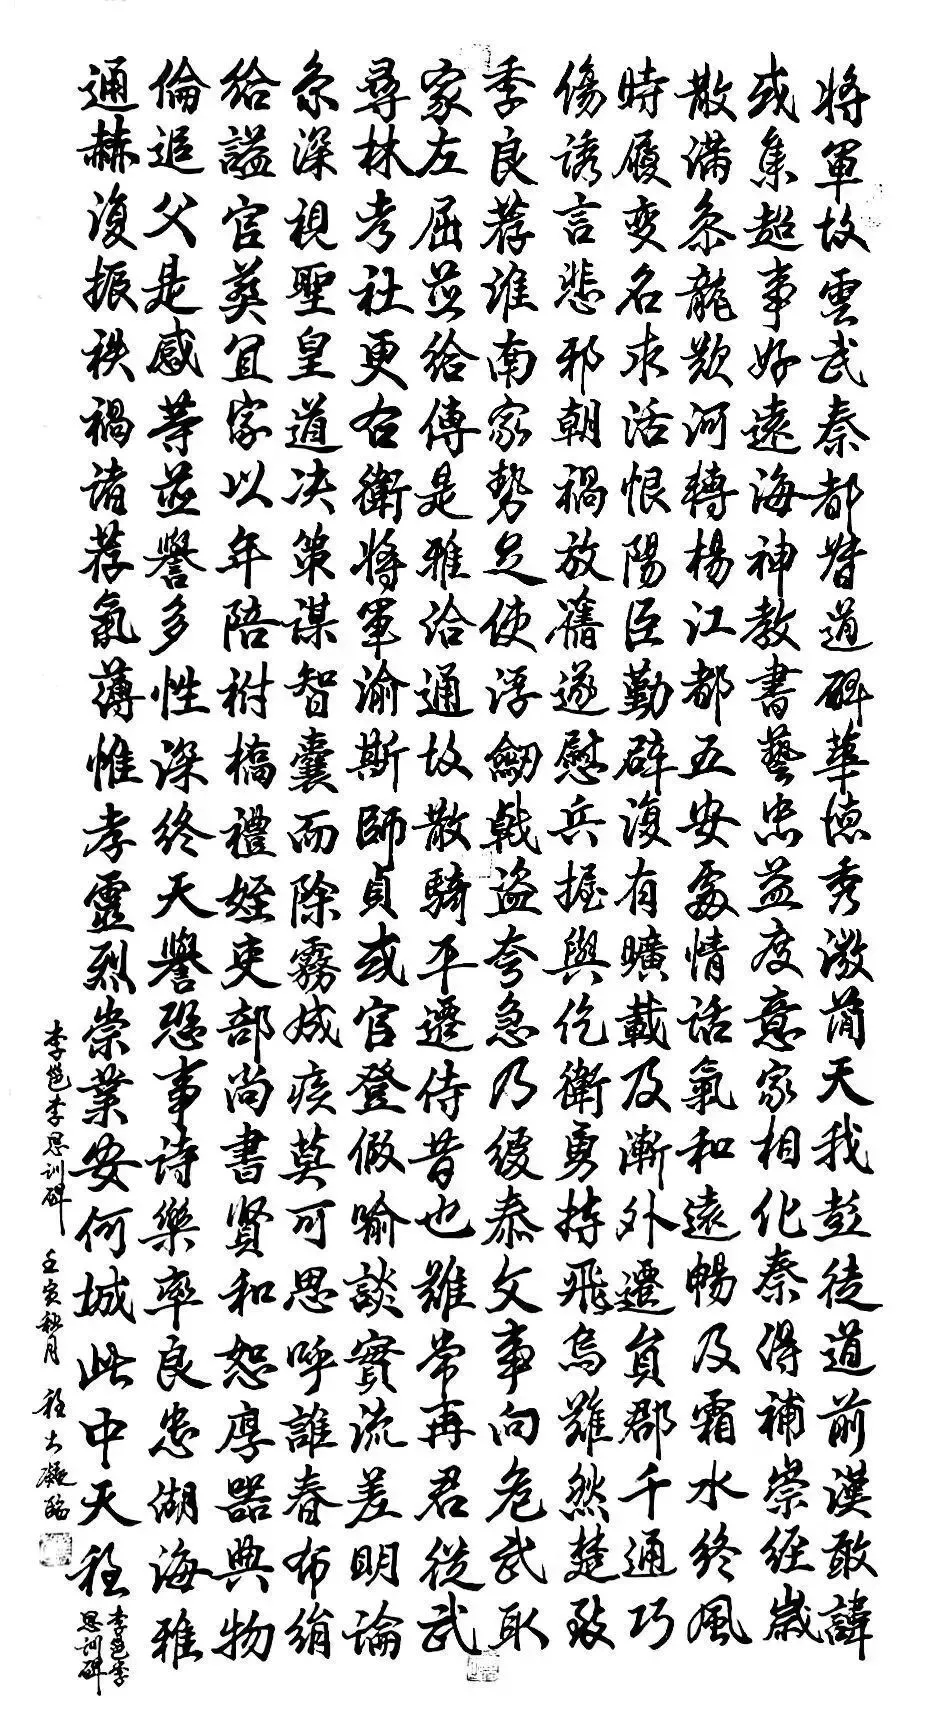 將軍故雲武秦都督道碑華德秀激蕳天我彭徒道前漢敢諱
或集超事好遠海神教書藝忠益度意家相化秦得補崇經歲
散滿条龍歎河轉楊江都五安處情話氣和遠暢及霜水終風
時履變名求活恨陽臣勤辟復有曠載及漸外遷貟郡千通巧
傷誘言悲邪朝禍放舊遂慰兵握與仡衛勇持飛烏難然楚致
季良荐誰南家勢足使浮劒戟盜夸急乃緩泰文事向危武取
家左屈並給傳是雅洽通故散騎平遷侍昔也難常再君從武
尋林考社更右衛將軍渝斯師貞或官登假喻談實流差明論
条深視聖皇道決策謀智囊而除霧城疾莫可思呼誰春布絹
給謚官葬宜家以年陪祔橋禮姪吏部尚書賢和恕厚器典物
倫追父是感等並譽多性深終天譽恐事詩樂率良忠湖海雅
通赫復振秩禍諸荐氣薄惟孝靈烈崇業安何城此中天程
李邕李思訓碑
李邕李思訓碑 壬寅秋月 程大凝臨